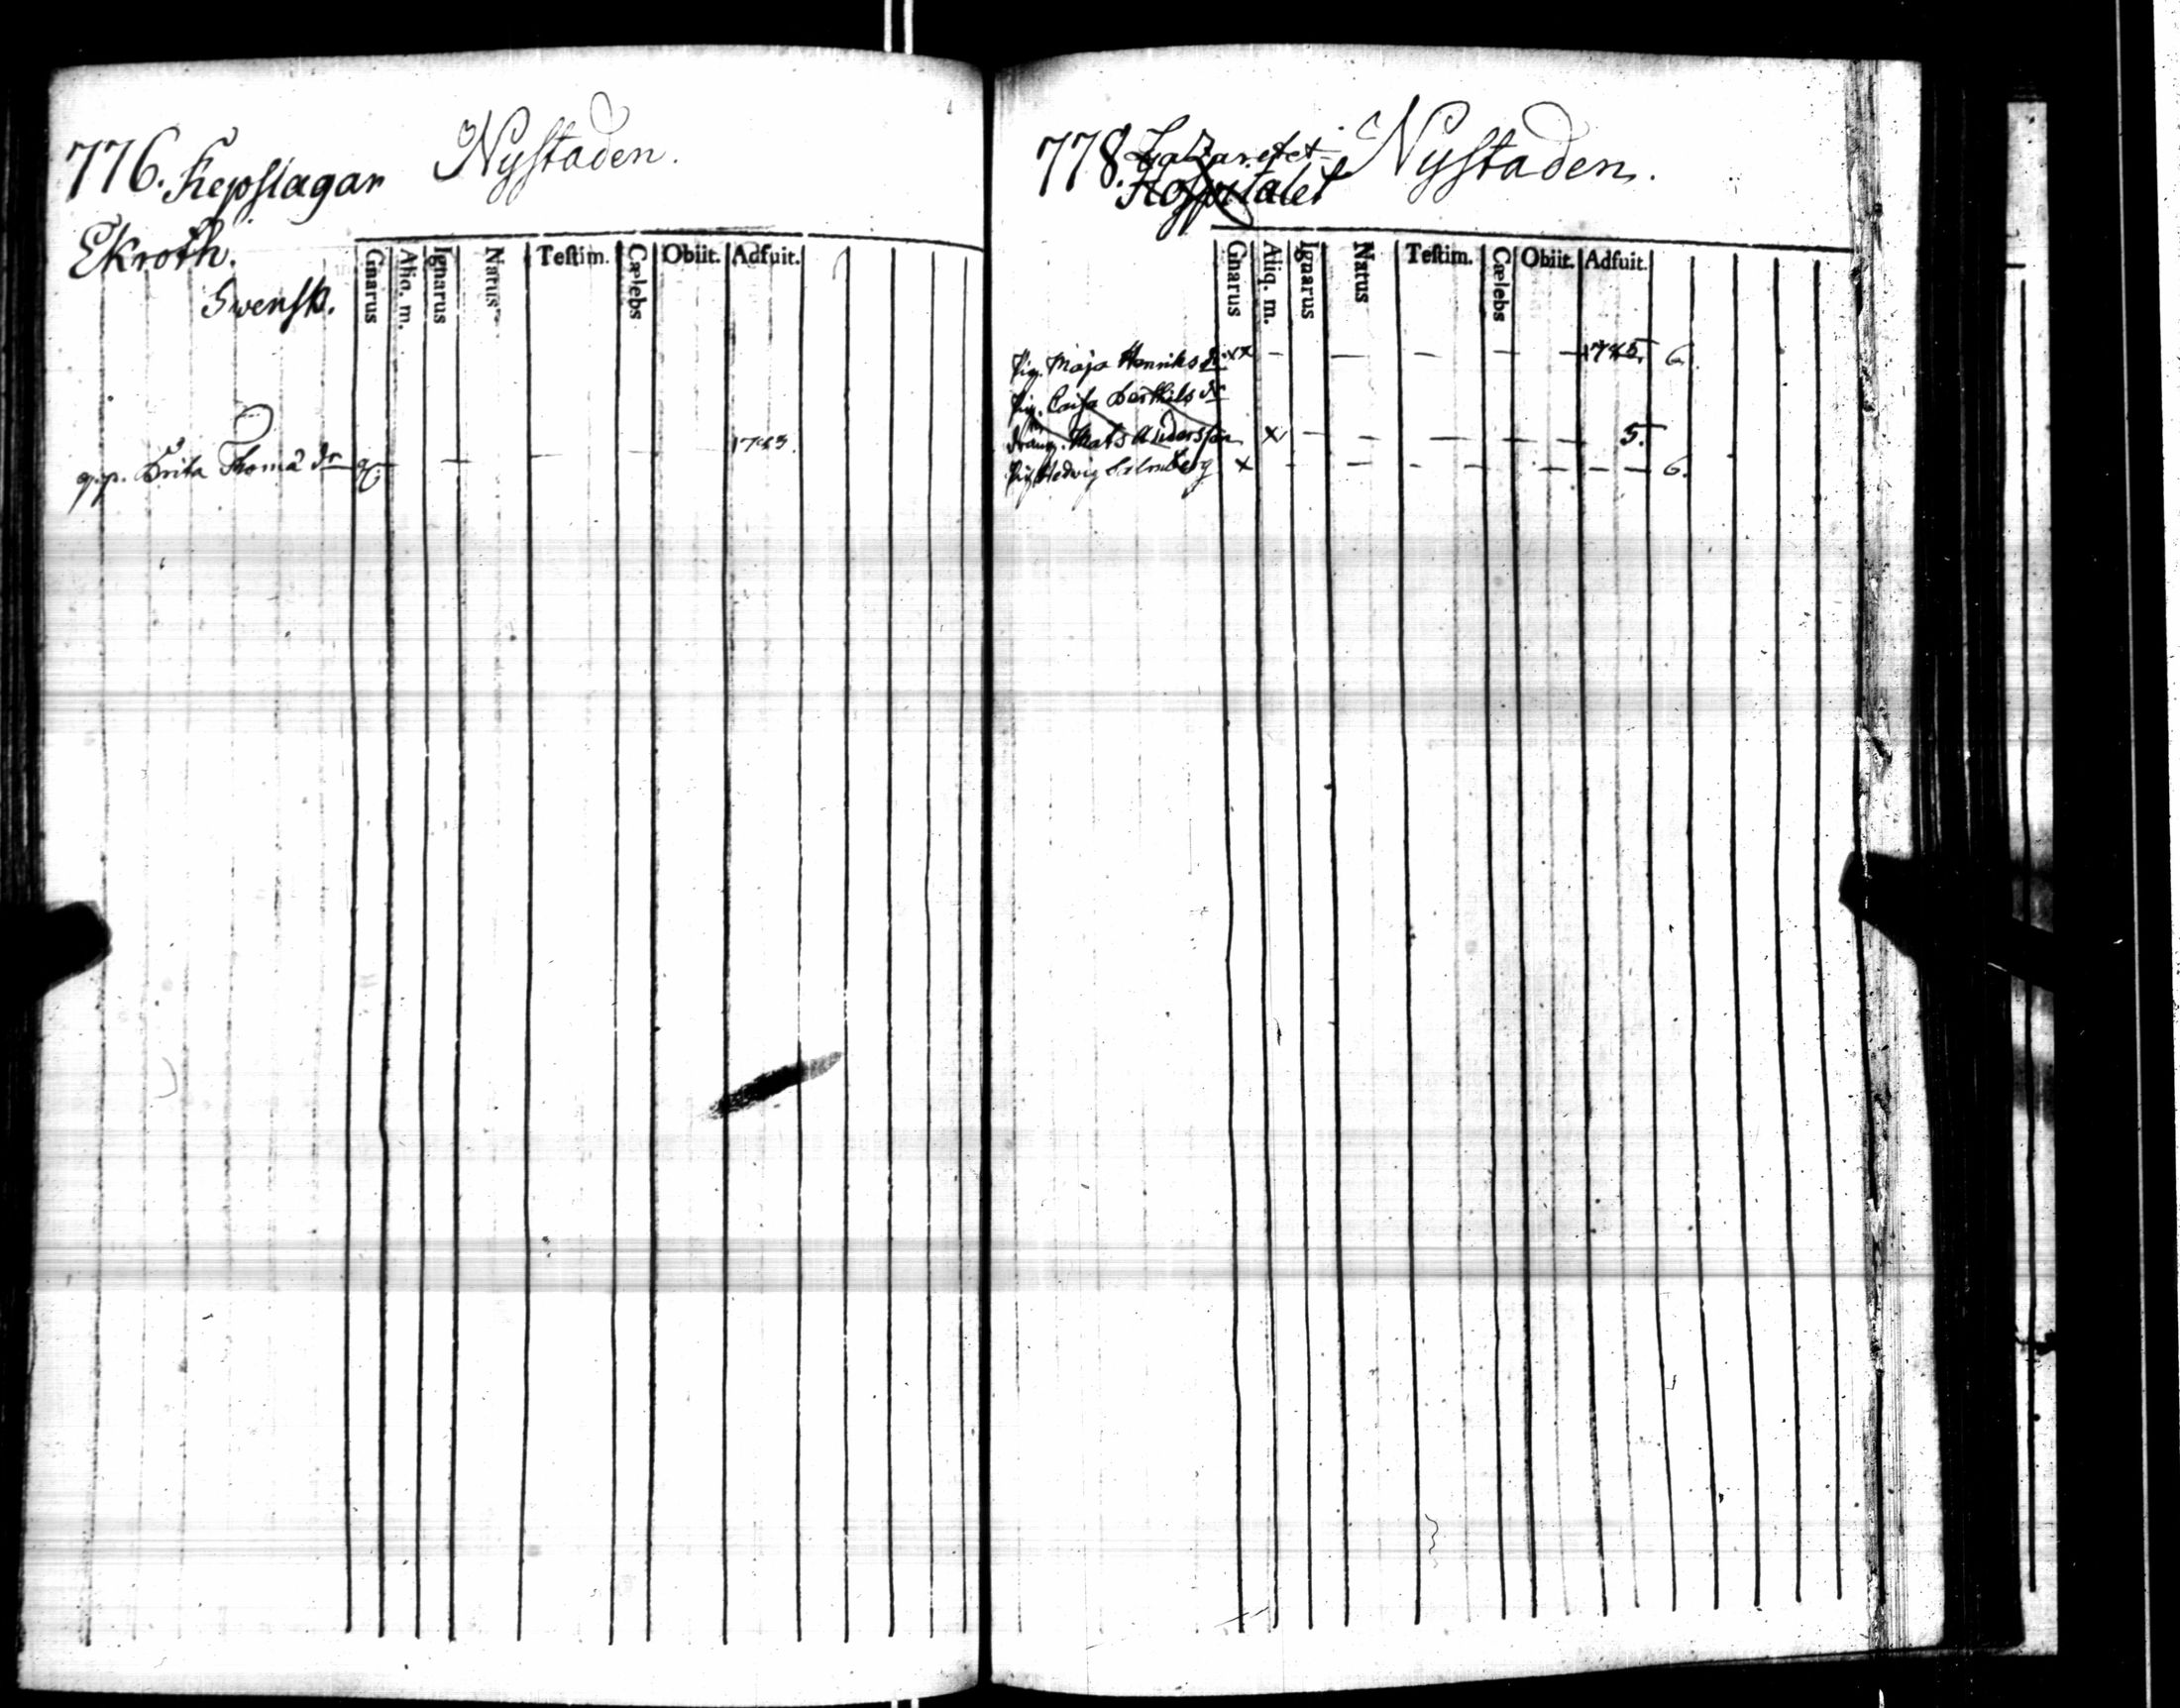 776. Repslagar Nystaden.
Ekroth.
Swensk.
Gnarus Aliq. m. Ignarus Natus Testim. Cælebs Obiit. Adfuit.
q.p. Brita Thomä dr — — — — 1785.
778. Lazaretet Nystaden.
Hospitalet
Gnarus Aliq. m. Ignarus Natus Testim. Cælebs Obiit. Adfuit.
Pig. Maja Henriks dr xx — — — — — 1785. 6.
Pig. Caisa Berthils dr
Dräng. Mats Andersson x — — — — — — 5.
Pig. Hedwig x — — — — — — — 6.